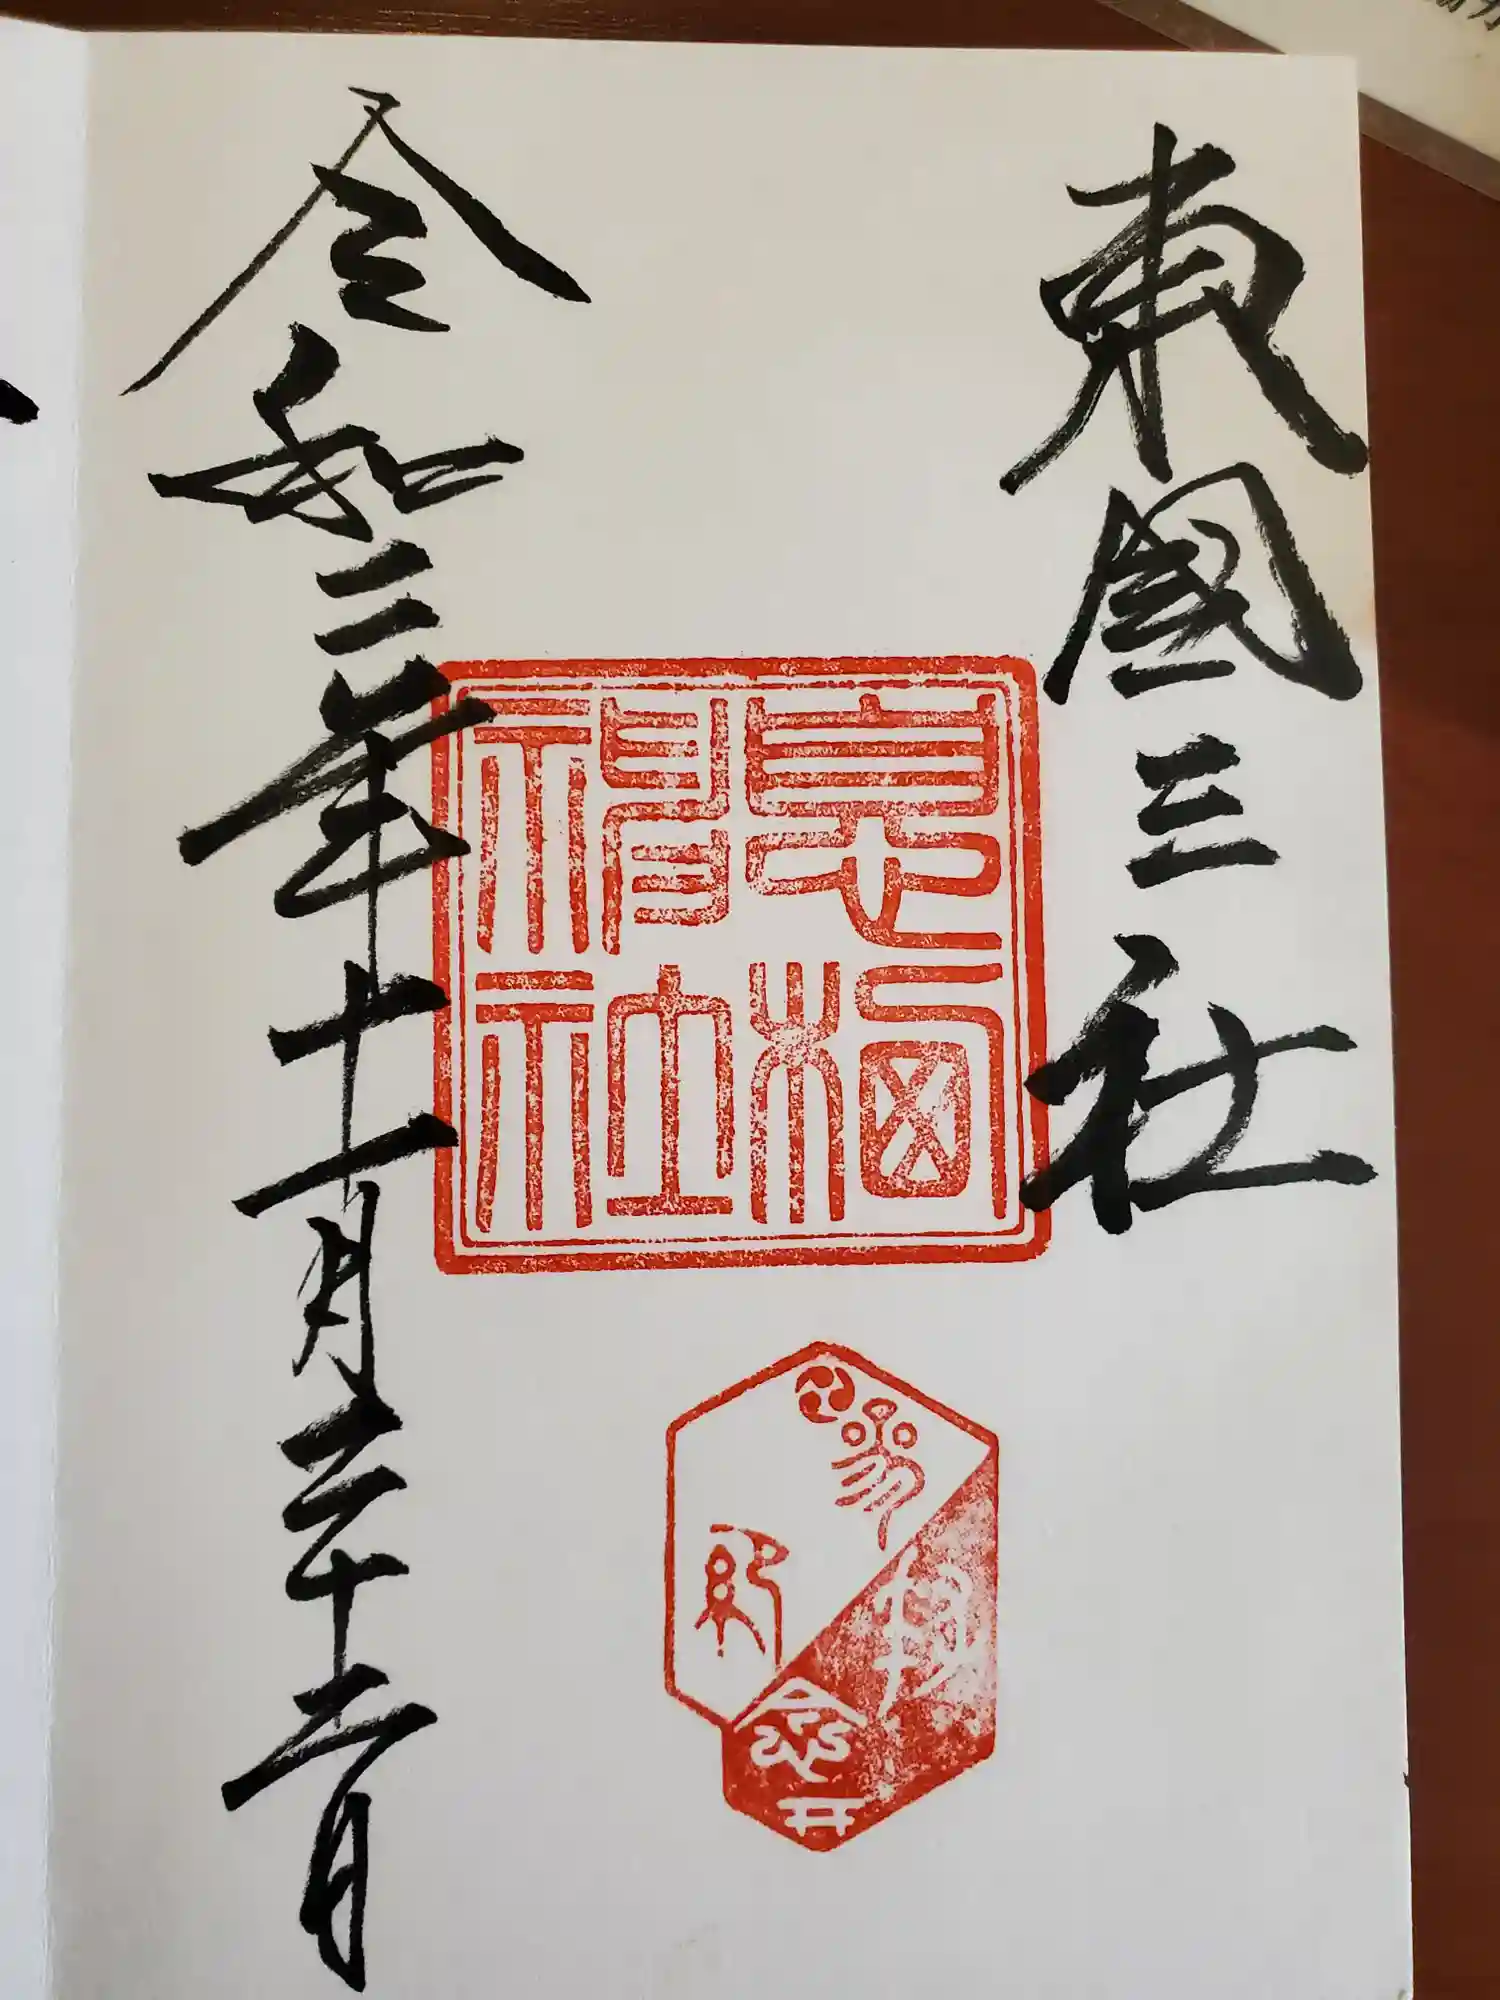 東國三社
息栖
神社
令和二年十一月二十二日